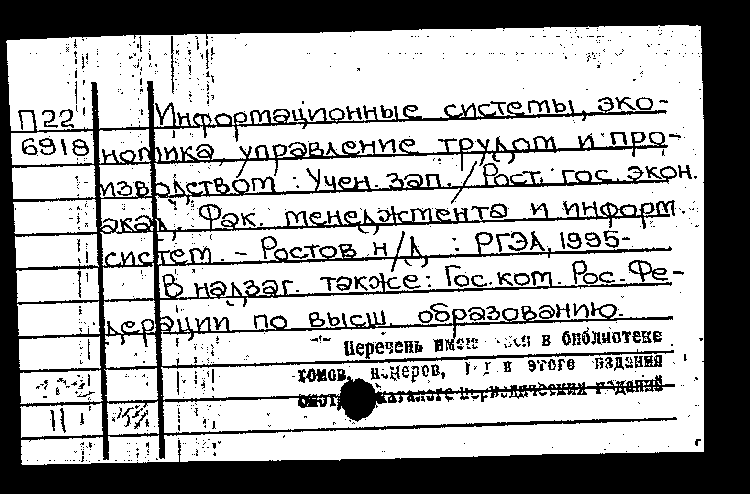 П22 Информационные системы, эко-
6918 номика, управление трудом и про-
изводством : Учен. зап. / Рост. гос. экон.
акад., Фак. менеджмента и информ.
систем. - Ростов н/Д : РГЭА, 1995-
В надзаг. также: Гос. ком. Рос. Фе-
дерации по высш. образованию.
Перечень в библиотеке
томов, номеров, и этого издания
каталоге периодических изданий